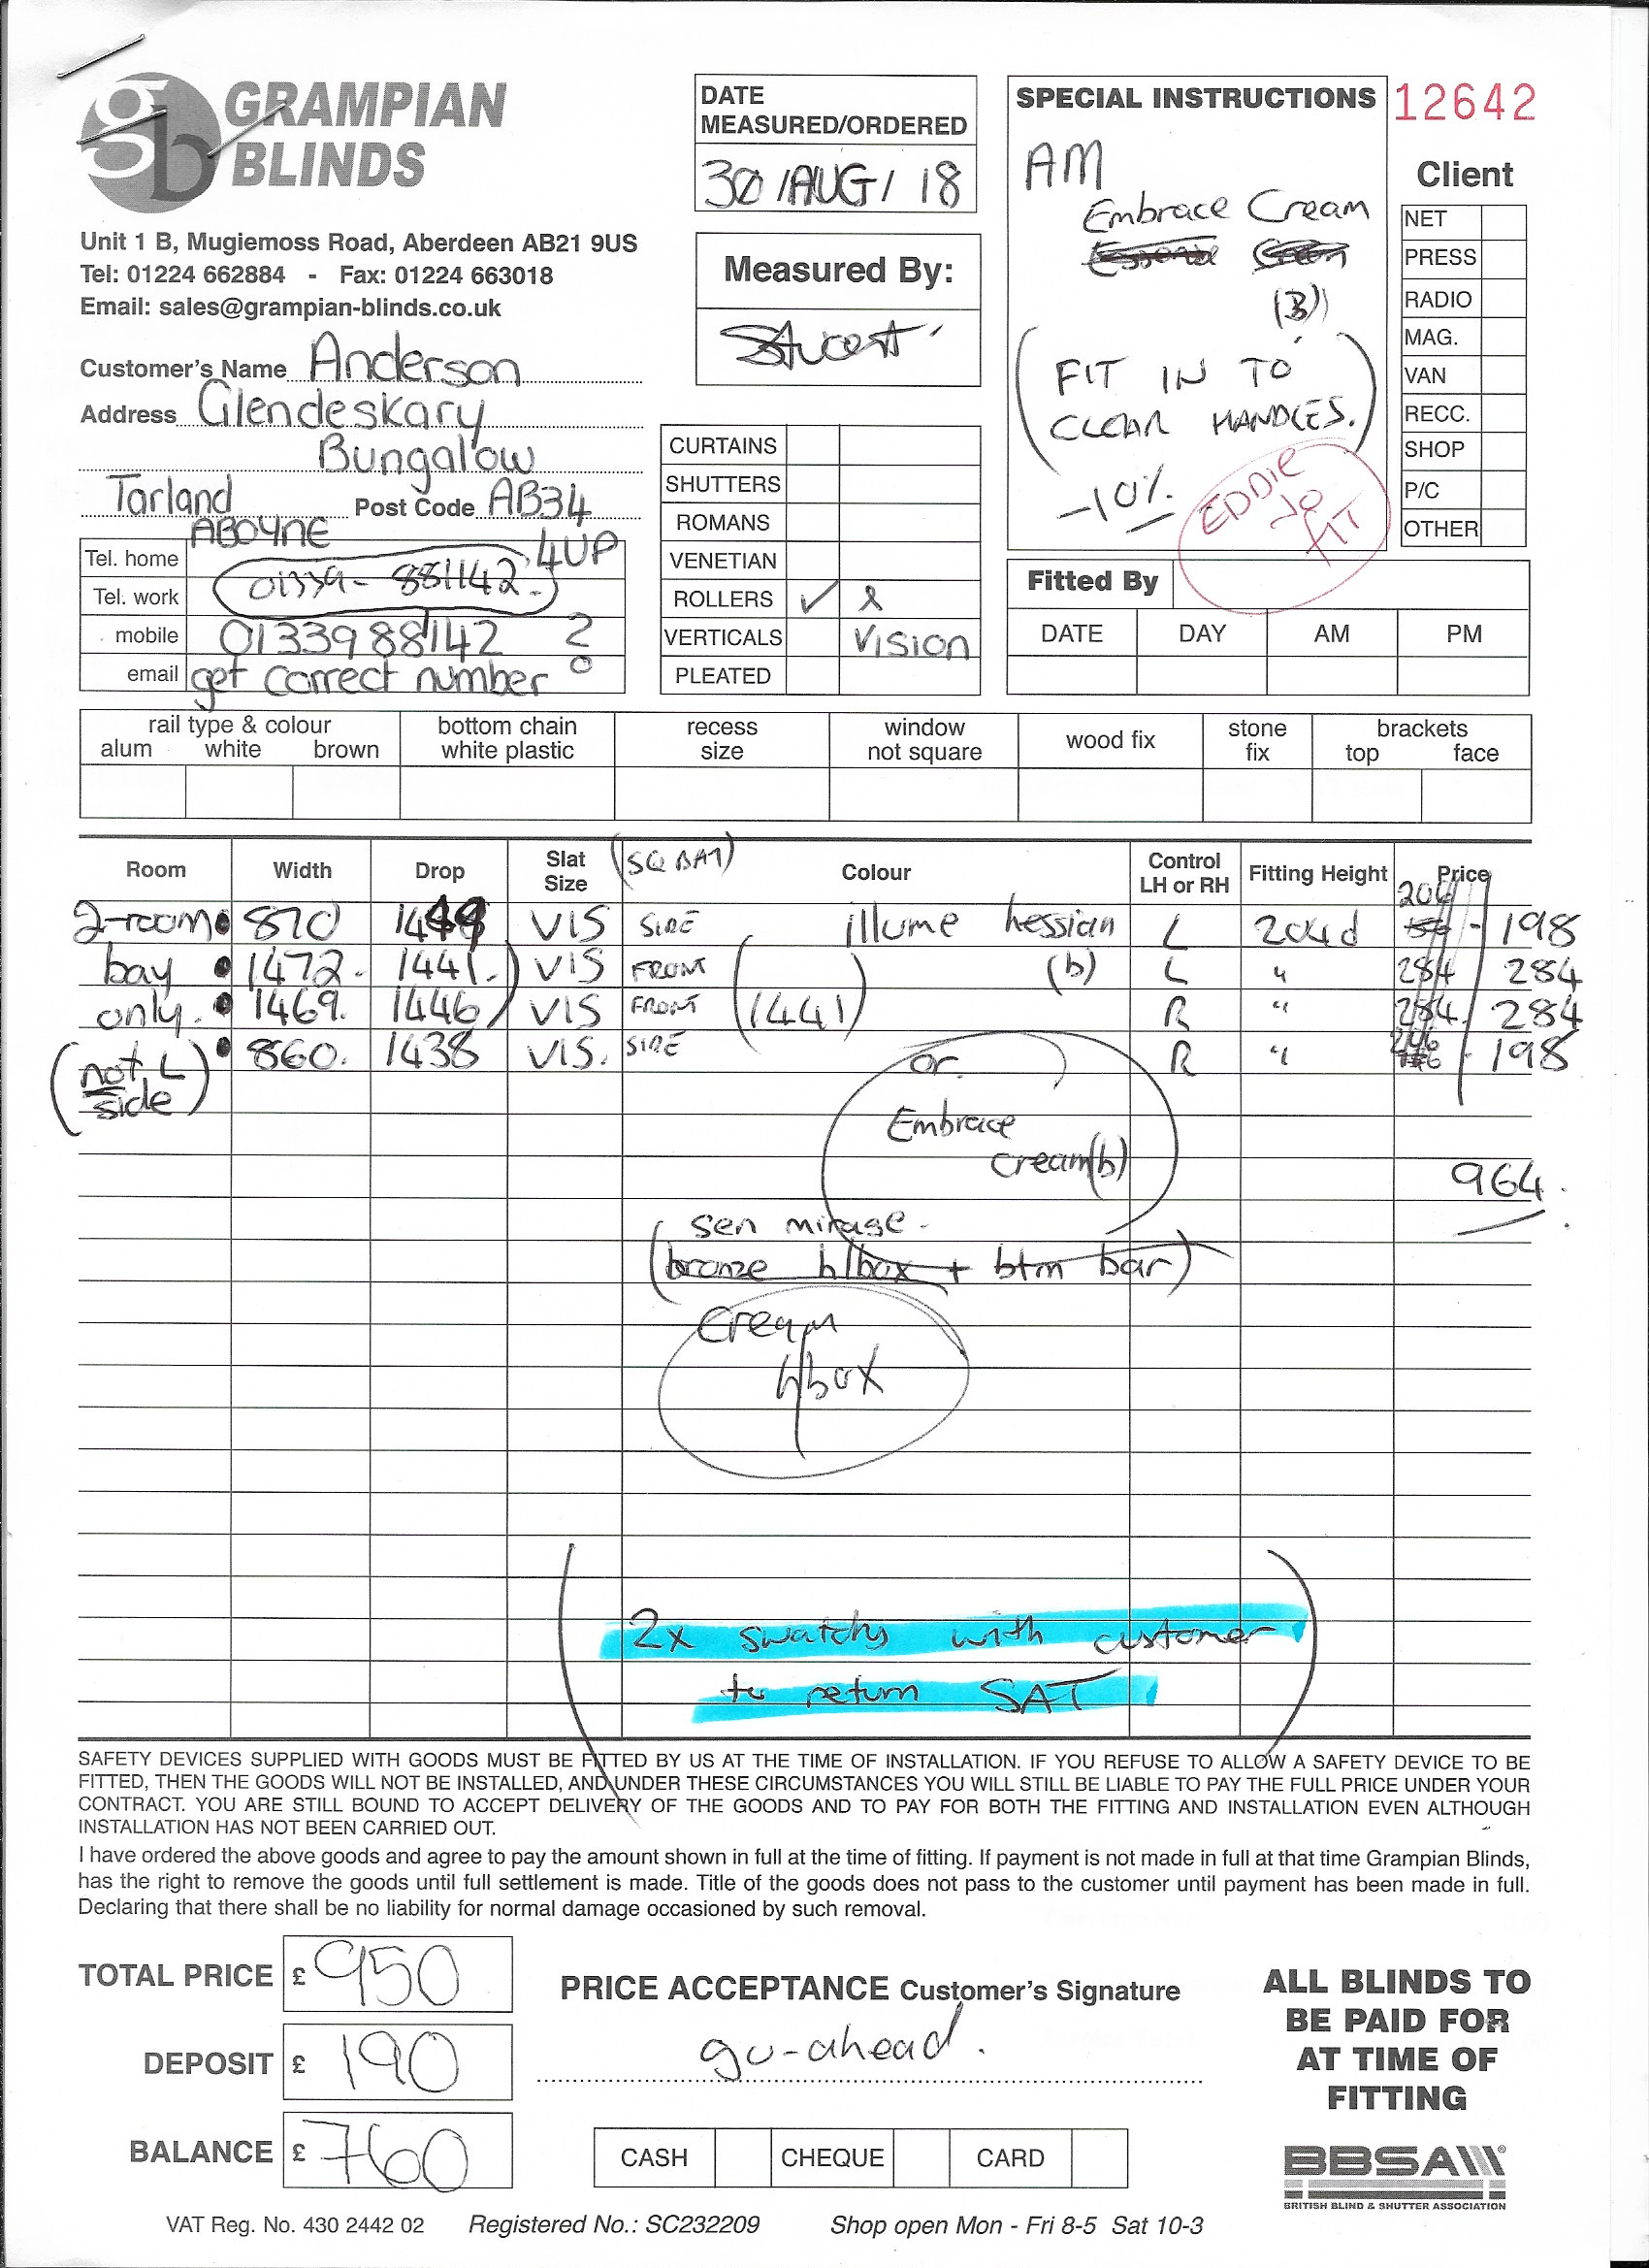 GRAMPIAN
BLINDS
Unit 1 B, Mugiemoss Road, Aberdeen AB21 9US
Tel: 01224 662884 - Fax: 01224 663018
Email: sales@grampian-blinds.co.uk
Customer's Name Anderson
Address Glendeskary
Bungalow
Tarland Post Code AB34
ABOYNE 4UP
Tel. home 01339-881142
Tel. work
mobile 0133988142 ?
email get correct number
DATE
MEASURED/ORDERED
30/AUG/18
Measured By:
Stuart
CURTAINS
SHUTTERS
ROMANS
VENETIAN
ROLLERS ✓ &
VERTICALS Vision
PLEATED
SPECIAL INSTRUCTIONS
AM
Embrace Cream
(B)
(FIT IN TO
CLEAR HANDLES.)
-10%
EDDIE
to
FIT
12642
Client
NET
PRESS
RADIO
MAG.
VAN
RECC.
SHOP
P/C
OTHER
Fitted By
DATE DAY AM PM
rail type & colour
alum white brown
bottom chain
white plastic
recess
size
window
not square
wood fix
stone
fix
brackets
top face
Room Width Drop Slat Size (SQ BAT) Colour Control LH or RH Fitting Height Price
2-room 870 1449 VIS SIDE illume hessian L 204d 198
bay 1472. 1441. VIS FRONT (b) L " 284 284
only. 1469. 1446 VIS FRONT (1441) R " 284 284
860. 1438 VIS. SIDE R " 198
(not L
side)
or
Embrace
cream(b)
964.
sen mirage -
(bronze h/box + btm bar)
Cream
h/box
(2x swatchs with customer
to return SAT)
SAFETY DEVICES SUPPLIED WITH GOODS MUST BE FITTED BY US AT THE TIME OF INSTALLATION. IF YOU REFUSE TO ALLOW A SAFETY DEVICE TO BE
FITTED, THEN THE GOODS WILL NOT BE INSTALLED, AND UNDER THESE CIRCUMSTANCES YOU WILL STILL BE LIABLE TO PAY THE FULL PRICE UNDER YOUR
CONTRACT. YOU ARE STILL BOUND TO ACCEPT DELIVERY OF THE GOODS AND TO PAY FOR BOTH THE FITTING AND INSTALLATION EVEN ALTHOUGH
INSTALLATION HAS NOT BEEN CARRIED OUT.
I have ordered the above goods and agree to pay the amount shown in full at the time of fitting. If payment is not made in full at that time Grampian Blinds,
has the right to remove the goods until full settlement is made. Title of the goods does not pass to the customer until payment has been made in full.
Declaring that there shall be no liability for normal damage occasioned by such removal.
TOTAL PRICE £ 950
DEPOSIT £ 190
BALANCE £ 760
PRICE ACCEPTANCE Customer's Signature
go-ahead.
CASH CHEQUE CARD
ALL BLINDS TO
BE PAID FOR
AT TIME OF
FITTING
BBSA
BRITISH BLIND & SHUTTER ASSOCIATION
VAT Reg. No. 430 2442 02 Registered No.: SC232209 Shop open Mon - Fri 8-5 Sat 10-3